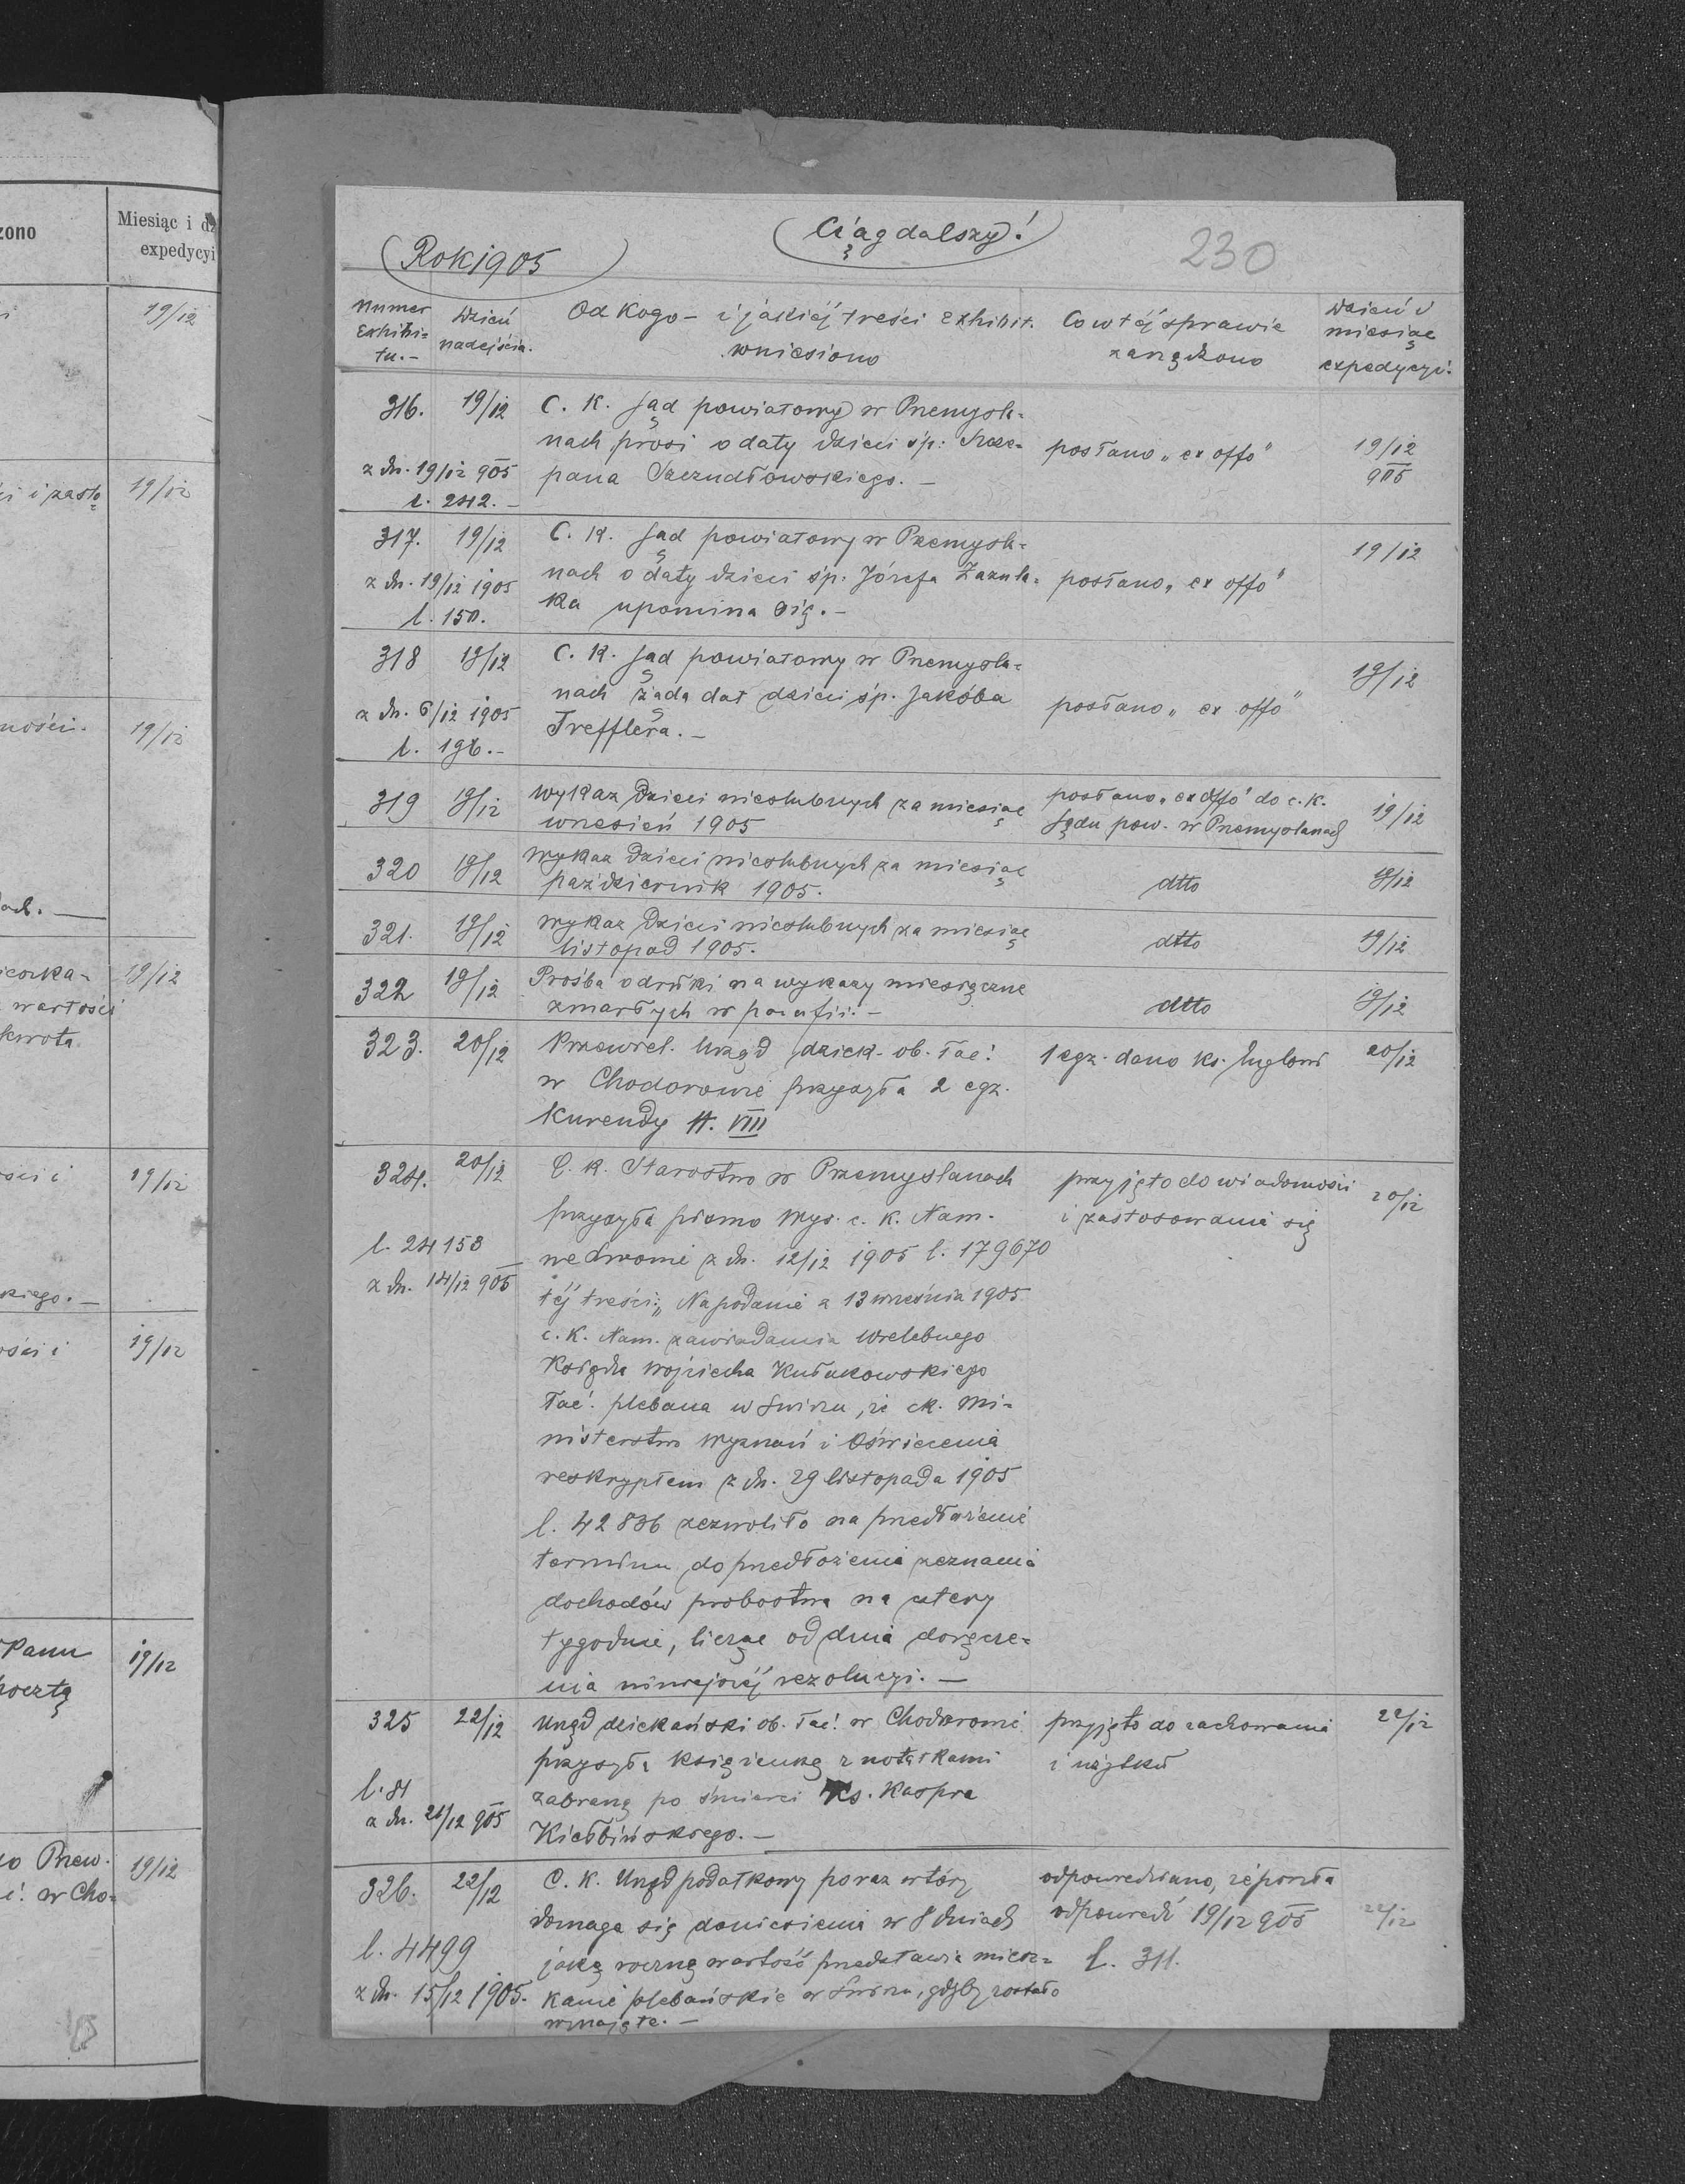 Ciąg dalszy!
230
Rok 1905
Numer Exhibi-tu.-
Dzień nadejścia.
Od kogo - i jakiéj treści exhibit. wniesiono
Co w téj sprawie zarządzono
Dzień i miesiąc expedycyi.
316. 19/12 C. K. Sąd powiatowy w Przemyśla-
nach prosi o daty dzieci śp. Szcze- posłano „ex offo" 19/12 905
z dn. 19/12 905 pana Szczudłowskiego. -
l. 242. -
317. 19/12 C. K. Sąd powiatowy w Przemyśla- 19/12
z dn. 19/12 1905 nach o daty dzieci śp. Józefa Zazula- posłano „ex offo"
l. 150. ka upomina się. -
318 19/12 C. K. Sąd powiatowy w Przemyśla- 19/12
nach żąda dat dzieci śp. Jakóba posłano „ex offo"
z dn. 6/12 1905 Trefflera. -
l. 196. -
319 19/12 Wykaz dzieci nieślubnych za miesiąc posłano „ex offo" do c. k. 19/12
wrzesień 1905 Sądu pow. w Przemyślanach
320 19/12 Wykaz dzieci nieślubnych za miesiąc dtto 19/12
październik 1905.
321. 19/12 Wykaz dzieci nieślubnych za miesiąc dtto 19/12
listopad 1905.
322 19/12 Prośba o druki na wykazy miesięczne dtto 19/12
zmarłych w parafii. -
323. 20/12 Przewiel. Urząd dziek. ob. łać. 1 egz. dano ks. 20/12
w Chodorowie przysyła 2 egz.
Kurendy N. VIII
324. 20/12 C. k. Starostwo w Przemyślanach przyjęto do wiadomości 20/12
przysyła pismo Wys. c. k. Nam. i zastosowania się
l. 24153 we Lwowie z dn. 12/12 1905 l. 179670
z dn. 14/12 905 téj treści: „Na podanie z 13 września 1905
c. K. Nam. zawiadamia Wielebnego
Księdza Wojciecha Kułakowskiego
łać. plebana w Świrzu, że ck. Mi-
nisterstwo Wyznań i Oświecenia
reskryptem z dn. 29 listopada 1905
l. 42836 zezwoliło na przedłużenie
terminu do przedłożenia zeznania
dochodów probostwa na cztery
tygodnie, licząc od dnia doręcze-
nia niniejszéj rezolucyi. -
325 22/12 Urząd dziekański ob. łać. w Chodorowie przyjęto do zachowania 22/12
przysyła książeczkę z notatkami i użytku
l. 81 zabraną po śmierci Ks. Kaspra
z dn. 21/12 905 Kiełbińskiego. -
326. 22/12 C. K. Urząd podatkowy po raz wtóry odpowiedziano, że poszła
domaga się doniesienia w 8 dniach odpowiedź 19/12 905 22/12
l. 4499 jaką roczną wartość przedstawia miesz- l. 311.
z dn. 15/12 1905. kanie plebańskie w Świrzu, gdyby zostało
wynajęte. -
zono
Miesiąc i
expedycyi
19/12
19/12
19/12
19/12
wartości
19/12
19/12
Panu 19/12
pocztą
Przew. 19/12
w Cho-